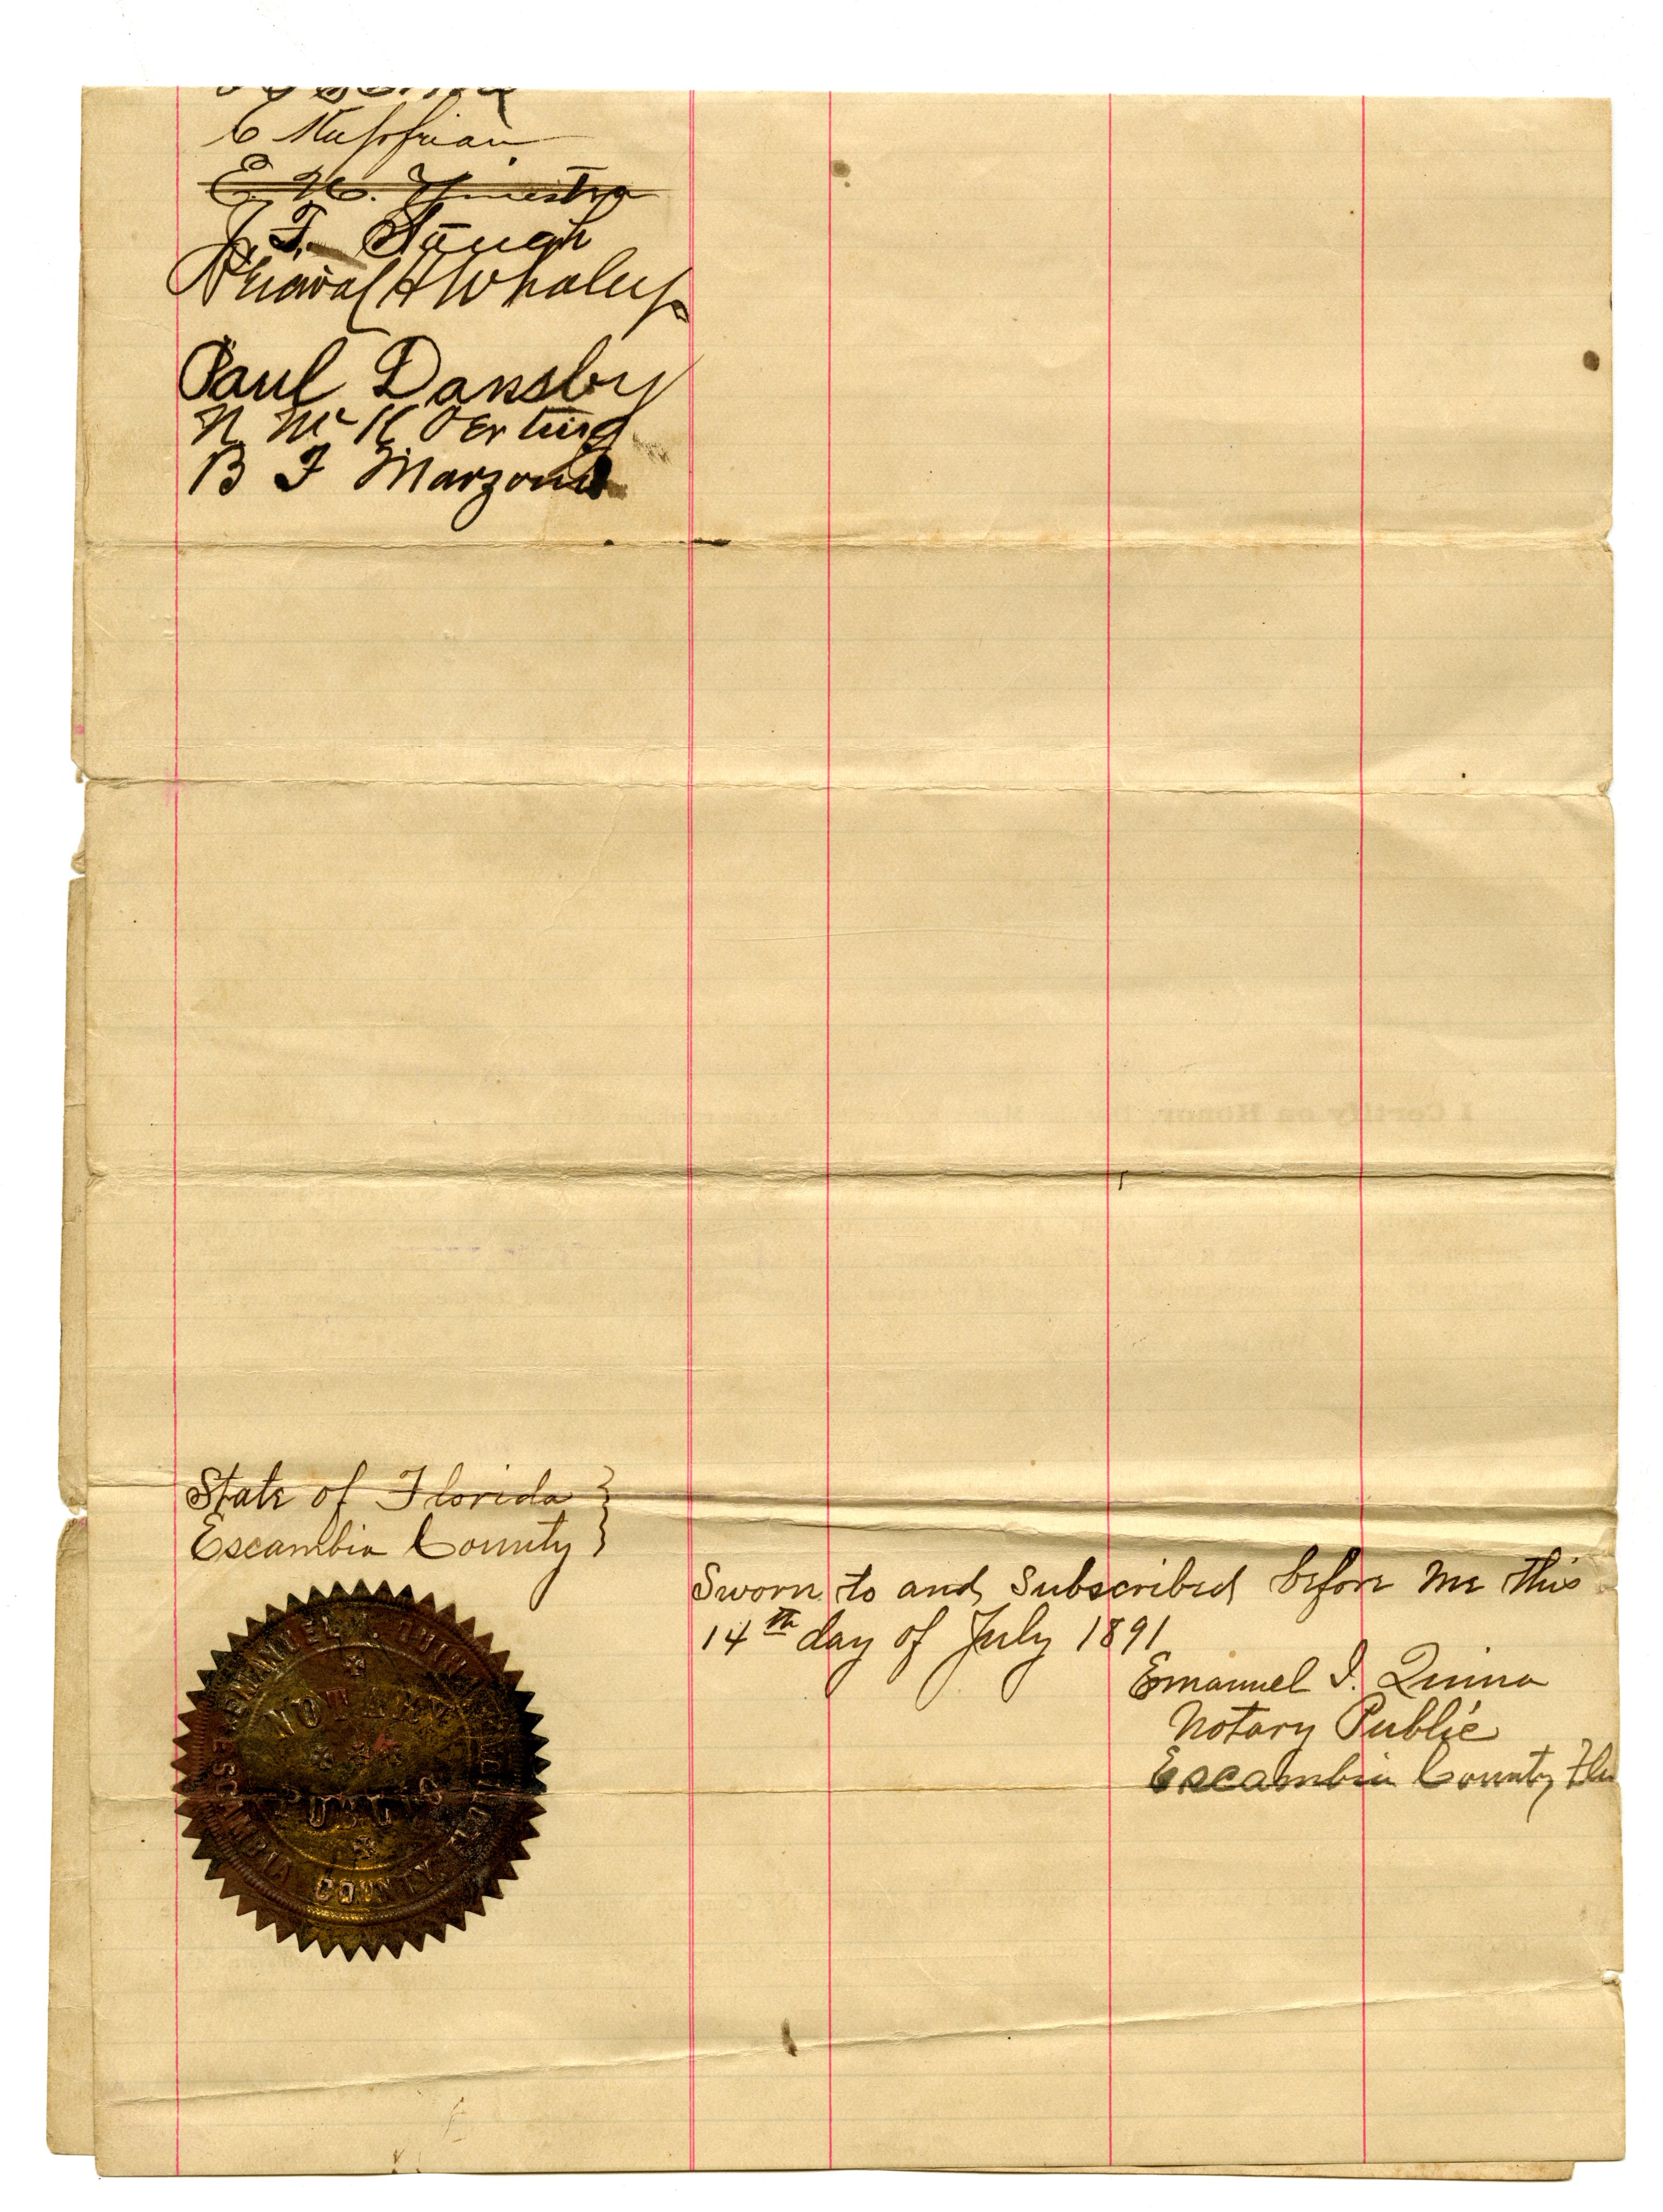 E. H.
J. T.
Whaley
Paul Dansby
N McK Oerting
B F Marzoni
State of Florida
Escambia County
Sworn to and Subscribed before me this
14th day of July 1891
Emanuel I. Quina
Notary Public
Escambia County Fla
EMANUEL I. QUINA
NOTARY
PUBLIC
ESCAMBIA COUNTY, FLA.
I Certify on Honor,